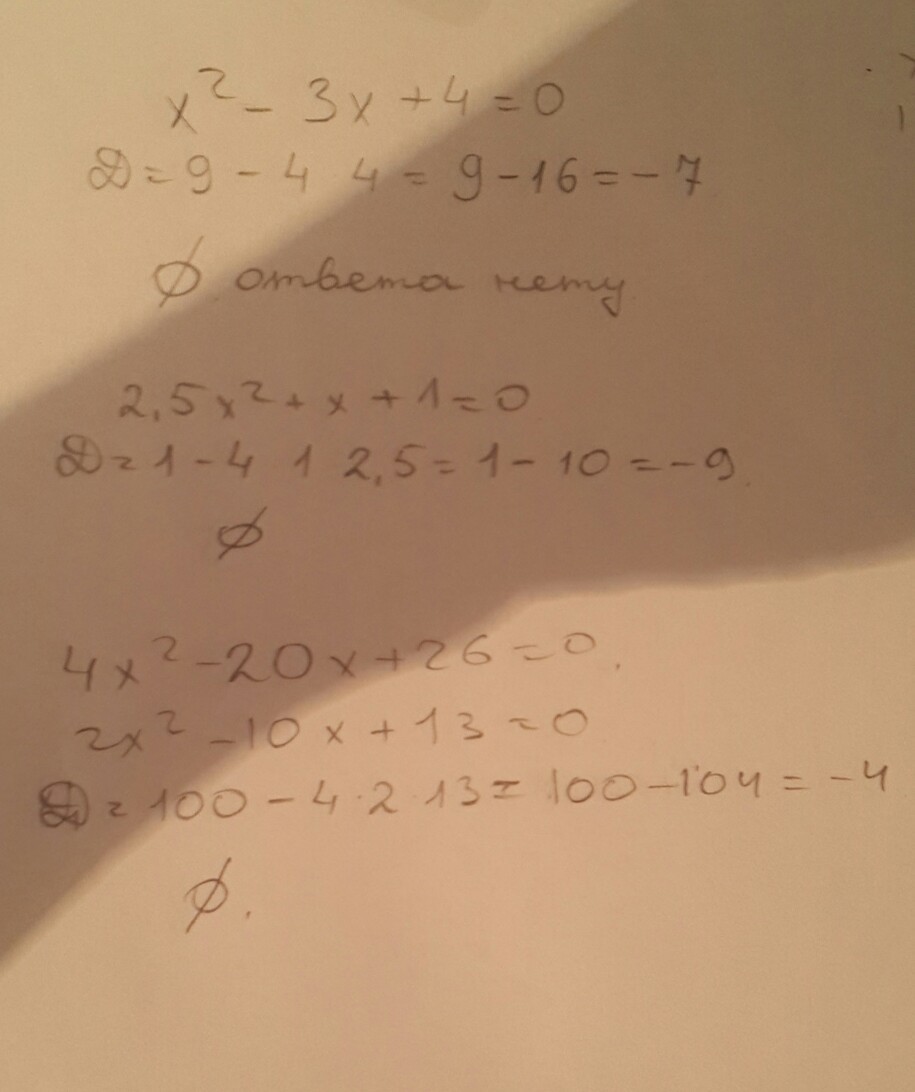 x² - 3x + 4 = 0
D = 9 - 4 4 = 9 - 16 = -7
∅. ответа нету
2,5x² + x + 1 = 0
D = 1 - 4 1 2,5 = 1 - 10 = -9.
∅
4x² - 20x + 26 = 0.
2x² - 10x + 13 = 0
D = 100 - 4 · 2 · 13 = 100 - 104 = -4
∅.